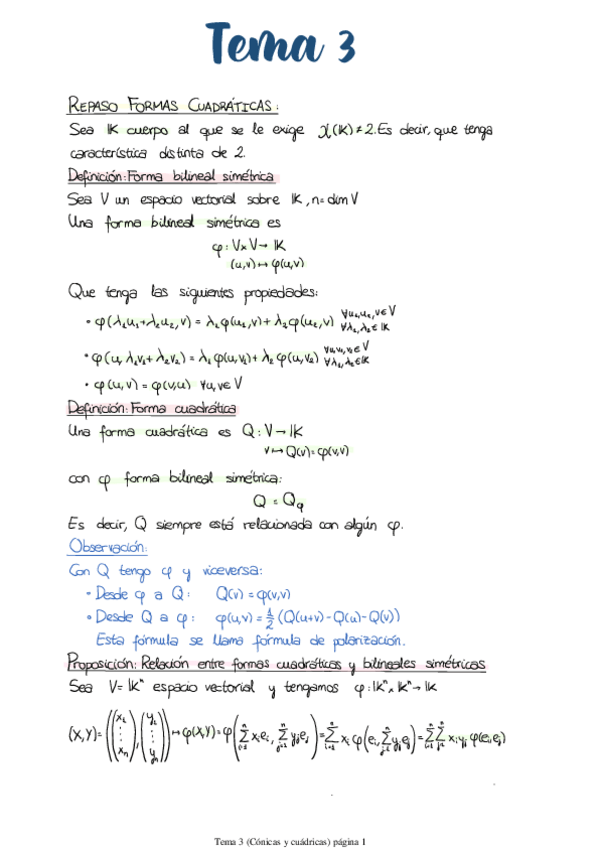 Tema 3
REPASO FORMAS CUADRÁTICAS:
Sea IK cuerpo al que se le exige χ(IK)≠2. Es decir, que tenga
característica distinta de 2.
Definición: Forma bilineal simétrica
Sea V un espacio vectorial sobre IK, n=dim V
Una forma bilineal simétrica es
φ: V×V→ IK
(u,v)↦φ(u,v)
Que tenga las siguientes propiedades:
• φ(λ₁u₁+λ₂u₂,v) = λ₁φ(u₁,v)+λ₂φ(u₂,v) ∀u₁,u₂,v∈V ∀λ₁,λ₂∈IK
• φ(u,λ₁v₁+λ₂v₂) = λ₁φ(u,v₁)+λ₂φ(u,v₂) ∀u,v₁,v₂∈V ∀λ₁,λ₂∈IK
• φ(u,v) = φ(v,u) ∀u,v∈V
Definición: Forma cuadrática
Una forma cuadrática es Q: V→IK
v↦Q(v)=φ(v,v)
con φ forma bilineal simétrica:
Q = Qφ
Es decir, Q siempre está relacionada con algún φ.
Observación:
Con Q tengo φ y viceversa:
• Desde φ a Q: Q(v)=φ(v,v)
• Desde Q a φ: φ(u,v)=1/2(Q(u+v)-Q(u)-Q(v))
Esta fórmula se llama fórmula de polarización.
Proposición: Relación entre formas cuadráticas y bilineales simétricas
Sea V=IKⁿ espacio vectorial y tengamos φ:IKⁿ×IKⁿ→IK
(X,Y)=((x₁ ⋮ xₙ),(y₁ ⋮ yₙ))↦φ(X,Y)=φ(∑ⁿᵢ₌₁ xᵢeᵢ, ∑ⁿⱼ₌₁ yⱼeⱼ)=∑ⁿᵢ₌₁ xᵢ φ(eᵢ,∑ⁿⱼ₌₁ yⱼeⱼ)=∑ⁿᵢ₌₁∑ⁿⱼ₌₁ xᵢyⱼ φ(eᵢ,eⱼ)
Tema 3 (Cónicas y cuádricas) página 1